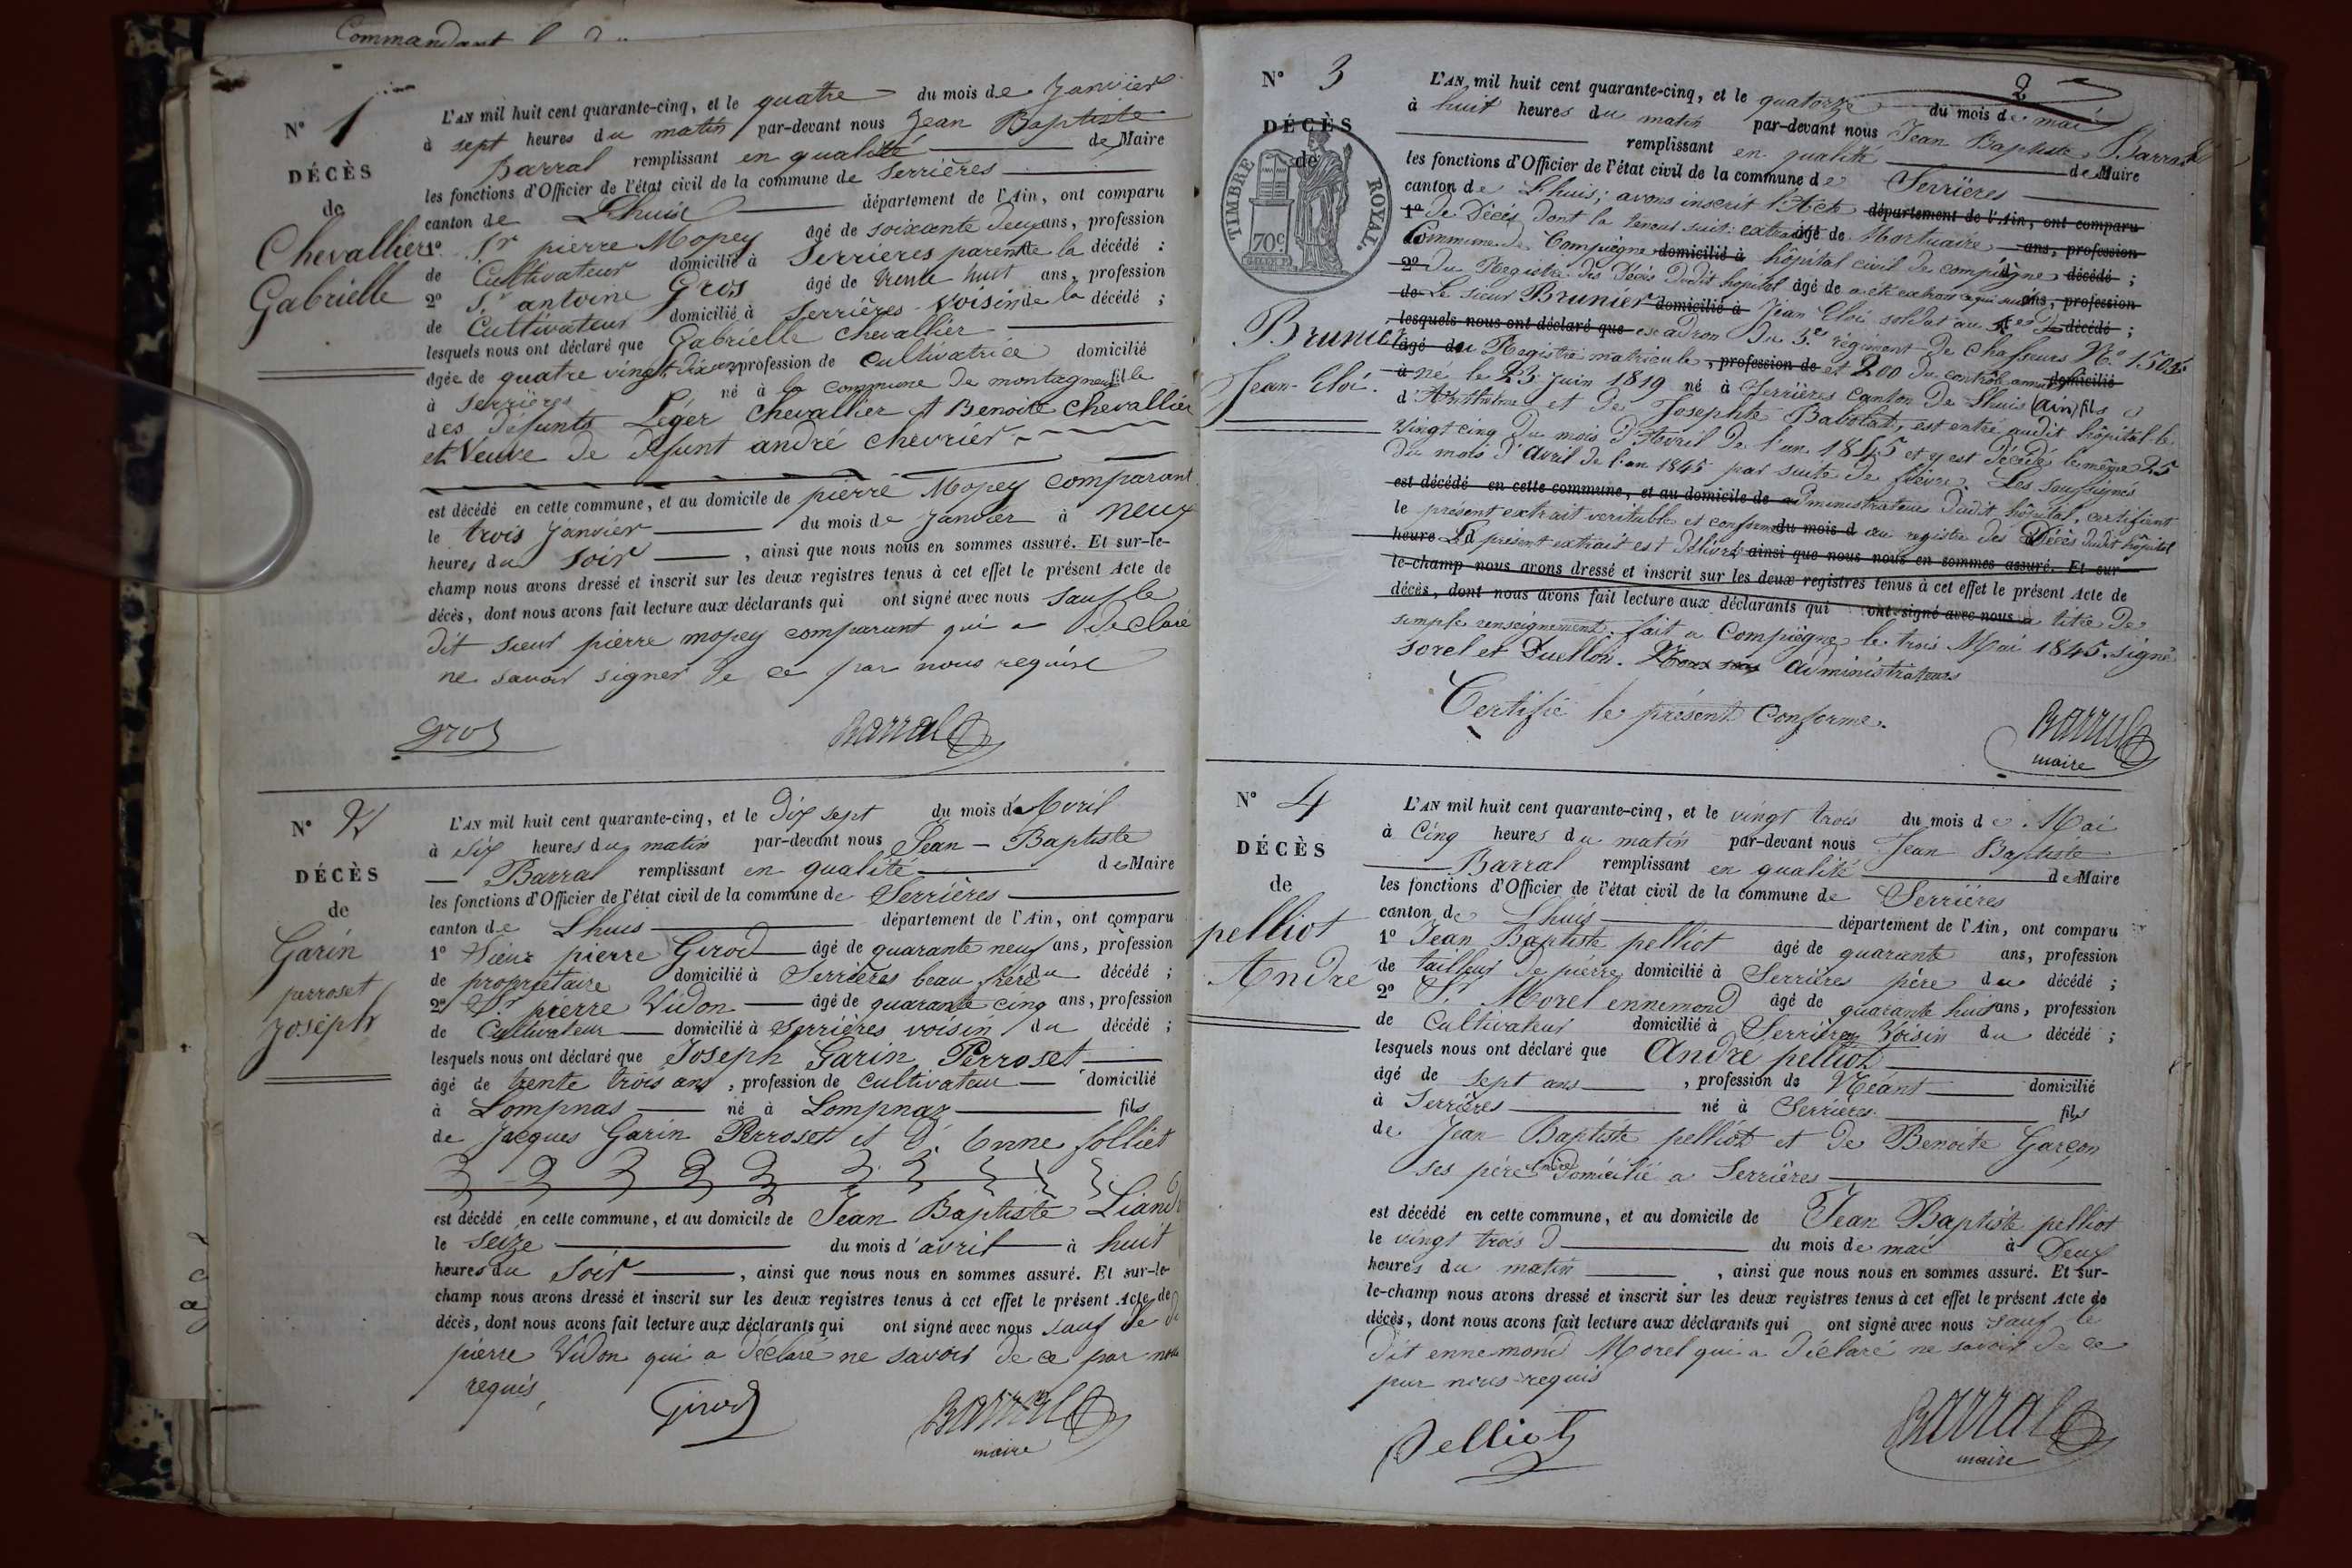 Commandant
N° 1
DÉCÈS
de
Chevallier
Gabrielle
L'AN mil huit cent quarante-cinq, et le quatre du mois de Janvier
à sept heures du matin par-devant nous Jean Baptiste
Barral remplissant en qualité de Maire
les fonctions d'Officier de l'état civil de la commune de Serrières
canton de Lhuis département de l'Ain, ont comparu
1° Sr pierre Mopey âgé de soixante deux ans, profession
de Cultivateur domicilié à Serrières parent de la décédé ;
2° Sr antoine Gros âgé de trente huit ans, profession
de Cultivateur domicilié à Serrières Voisin de la décédé ;
lesquels nous ont déclaré que Gabrielle chevallier
âgée de quatre vingt dix ans profession de Cultivatrice domicilié
à Serrières né à la commune de montagneu fille
des défunts Léger chevallier et Benoite chevallier
et Veuve de défunt andré chevrier
est décédé en cette commune, et au domicile de pierre Mopey comparant
le trois Janvier du mois de Janvier à neuf
heures du soir, ainsi que nous nous en sommes assuré. Et sur-le-
champ nous avons dressé et inscrit sur les deux registres tenus à cet effet le présent Acte de
décès, dont nous avons fait lecture aux déclarants qui ont signé avec nous sauf le
dit sieur pierre mopey comparant qui a déclaré
ne savoir signer de ce par nous requise
gros Barral
N° 2
DÉCÈS
de
Garin
perroset
Joseph
L'AN mil huit cent quarante-cinq, et le Dix sept du mois d'Avril
à six heures du matin par-devant nous Jean - Baptiste
Barral remplissant en qualité de Maire
les fonctions d'Officier de l'état civil de la commune de Serrières
canton de Lhuis département de l'Ain, ont comparu
1° Sieur pierre Girod âgé de quarante neuf ans, profession
de propriétaire domicilié à Serrières beau frère du décédé ;
2° Sr pierre Vidon âgé de quarante cinq ans, profession
de Cultivateur domicilié à Serrières voisin du décédé ;
lesquels nous ont déclaré que Joseph Garin Perroset
âgé de trente trois ans, profession de cultivateur domicilié
à Lompnas né à Lompnaz fils
de Jacques Garin Perroset et d'Anne folliet
est décédé en cette commune, et au domicile de Jean Baptiste
le seize du mois d'avril à huit
heures du soir, ainsi que nous nous en sommes assuré. Et sur-le-
champ nous avons dressé et inscrit sur les deux registres tenus à cet effet le présent Acte de
décès, dont nous avons fait lecture aux déclarants qui ont signé avec nous sauf le
pierre Vidon qui a déclaré ne savoir de ce par nous
requis,
Girod Barral
maire
2
N° 3
DÉCÈS
de
TIMBRE ROYAL.
70c
Brunier
Jean-Eloi.
L'AN mil huit cent quarante-cinq, et le quatorze du mois de mai
à huit heures du matin par-devant nous Jean Baptiste Barral
remplissant en qualité de Maire
les fonctions d'Officier de l'état civil de la commune de Serrières
canton de Lhuis; avons inscrit l'Acte département de l'Ain, ont comparu
1° de Décès dont la teneur suit: extrait âgé de Mortuaire ans, profession
Commune de Compiègne domicilié à hôpital civil de compiègne décédé ;
2° du Registre des Décès dudit hôpital âgé de a été extrait ce qui suit ans, profession
de Le sieur Brunier domicilié à Jean Eloi soldat au décédé ;
lesquels nous ont déclaré que escadron du 3e régiment de chasseurs N° 1505
âgé de du Registre matricule, profession de et 200 du contrôle annuel domicilié
à né le 23 Juin 1819 né à Serrières Canton de Lhuis (ain) fils
d'Anthelme et de Josephte Babolat, est entré audit hôpital le
vingt cinq du mois d'Avril de l'an 1845 et y est décédé le même 25
du mois d'avril de l'an 1845 par suite de fièvre. Les soussignés
est décédé en cette commune, et au domicile de administrateurs dudit hôpital, certifient
le présent extrait veritable et conforme du mois d au registre des Décès dudit hôpital
heure Le présent extrait est délivré ainsi que nous nous en sommes assuré. Et sur
le-champ nous avons dressé et inscrit sur les deux registres tenus à cet effet le présent Acte de
décès, dont nous avons fait lecture aux déclarants qui ont signé avec nous à titre de
simple renseignement. fait a Compiègne le trois Mai 1845. signé
Sorel et Fuellon. administrateurs
Certifié le présent Conforme.
Barral
maire
N° 4
DÉCÈS
de
pelliot
Andre
L'AN mil huit cent quarante-cinq, et le vingt trois du mois de Mai
à Cinq heures du matin par-devant nous Jean Baptiste
Barral remplissant en qualité de Maire
les fonctions d'Officier de l'état civil de la commune de Serrières
canton de Lhuis département de l'Ain, ont comparu
1° Jean Baptiste pelliot âgé de quarante ans, profession
de tailleur de pierre domicilié à Serrières père du décédé ;
2° Sr Morel ennemond âgé de quarante huit ans, profession
de Cultivateur domicilié à Serrières Voisin du décédé ;
lesquels nous ont déclaré que Andre pelliot
âgé de sept ans, profession de Néant domicilié
à Serrières né à Serrières fils
de Jean Baptiste pelliot et de Benoite Garçon
ses père et mère Domicilié a Serrières
est décédé en cette commune, et au domicile de Jean Baptiste pelliot
le vingt trois d du mois de mai à Deux
heures du matin, ainsi que nous nous en sommes assuré. Et sur-
le-champ nous avons dressé et inscrit sur les deux registres tenus à cet effet le présent Acte de
décès, dont nous avons fait lecture aux déclarants qui ont signé avec nous sauf le
dit ennemond Morel qui a déclaré ne savoir de ce
par nous requis
Pelliot Barral
maire